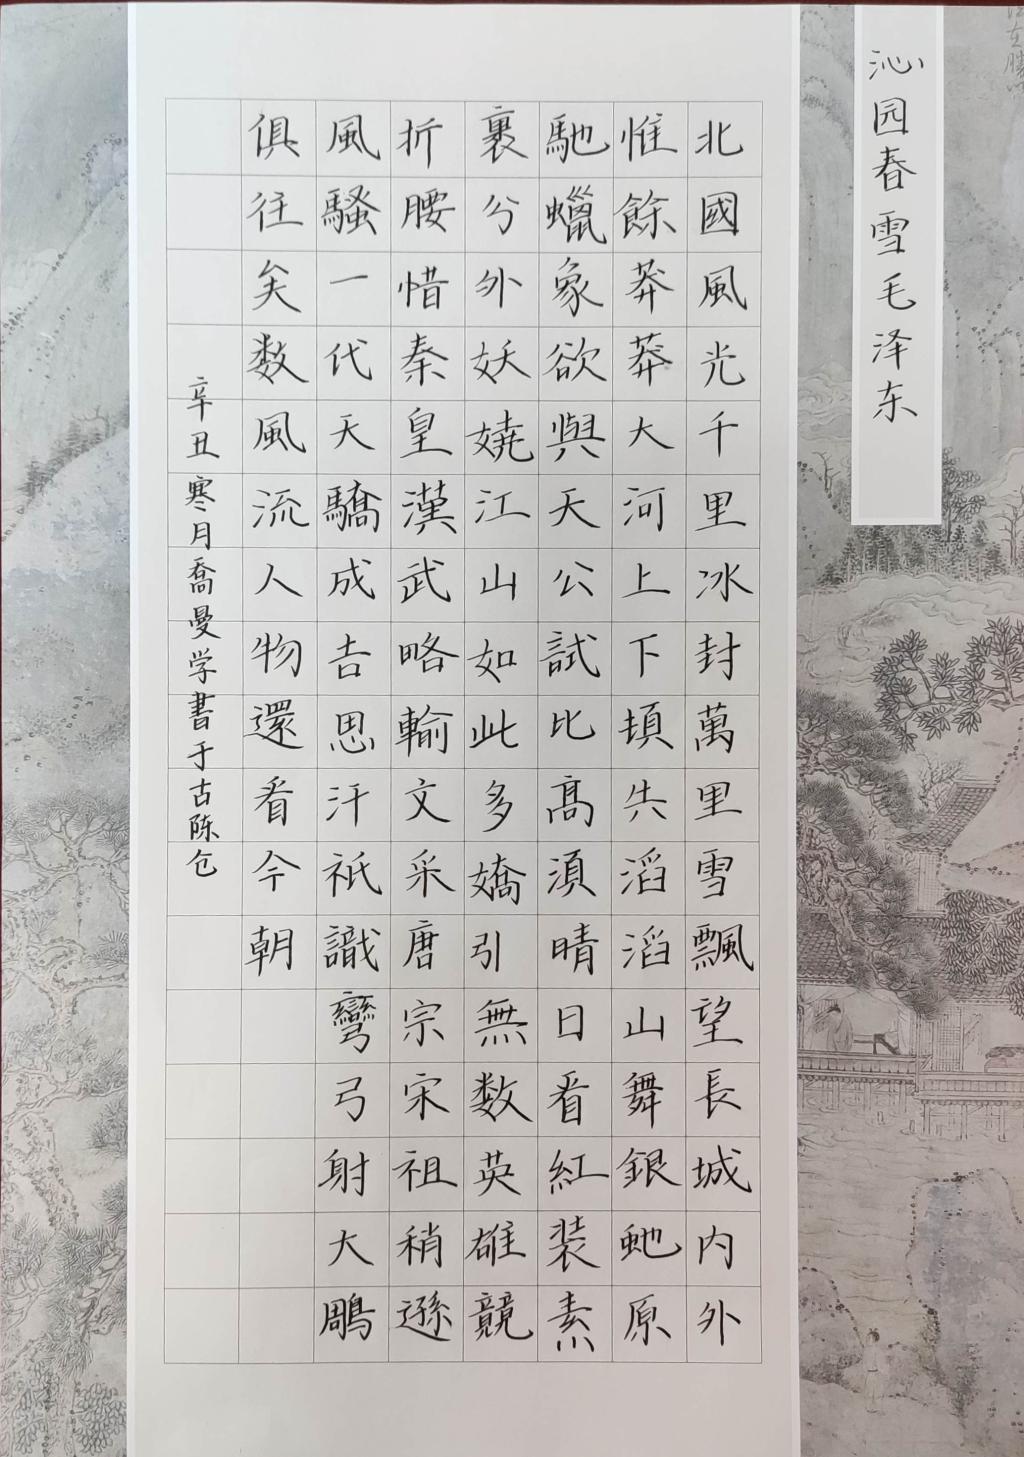 沁园春雪毛泽东
北國風光千里冰封萬里雪飄望長城内外
惟餘莽莽大河上下頓失滔滔山舞銀虵原
馳蠟象欲與天公試比髙湏晴日看紅装素
裹兮外妖嬈江山如此多嬌引無数英雄競
折腰惜秦皇漢武略輸文采唐宗宋祖稍遜
風騷一代天驕成吉思汗祇識彎弓射大鵰
俱往矣数風流人物還看今朝
辛丑寒月喬曼学書于古陈仓